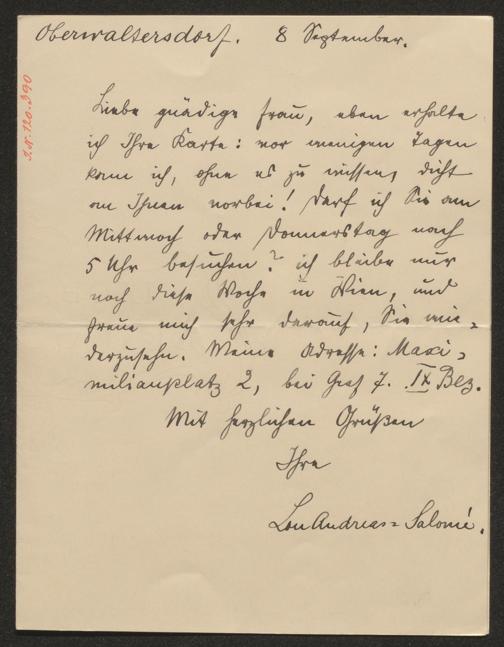 Oberwaltersdorf. 8 September.
I.N. 120.390
Liebe gnädige Frau, eben erhalte
ich Ihre Karte: vor wenigen Tagen
kam ich, ohne es zu wissen, dicht
an Ihnen vorbei! Darf ich Sie am
Mittwoch oder Donnerstag nach
5 Uhr besuchen? ich bleibe nur
noch diese Woche in Wien, und
freue mich sehr darauf, Sie wie=
derzusehn. Meine Adresse: Maxi=
milianplatz 2, bei Graf J. IX Bez.
Mit herzlichen Grüßen
Ihre
Lou Andreas=Salomé.